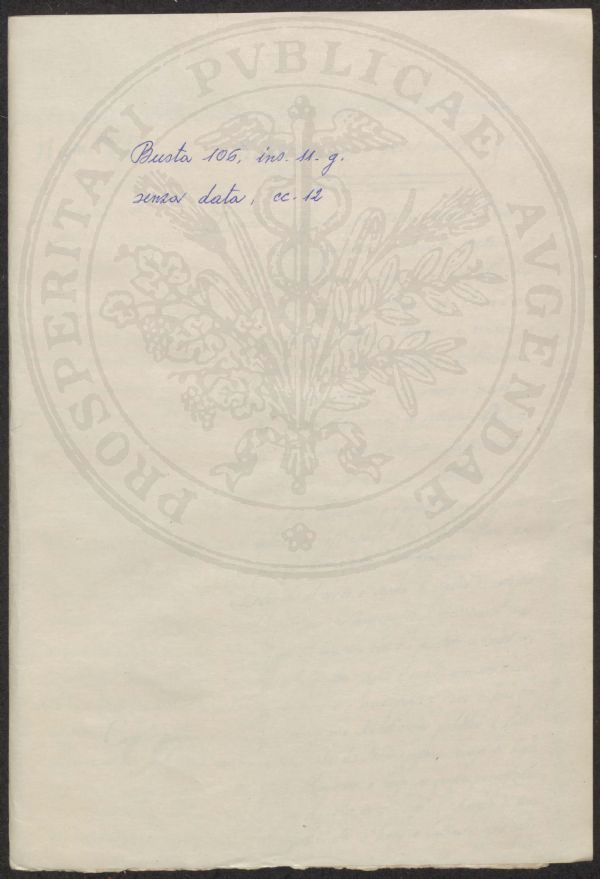 PROSPERITATI PVBLICAE AVGENDAE
Busta 106, ins. 11. g.
senza data, cc. 12